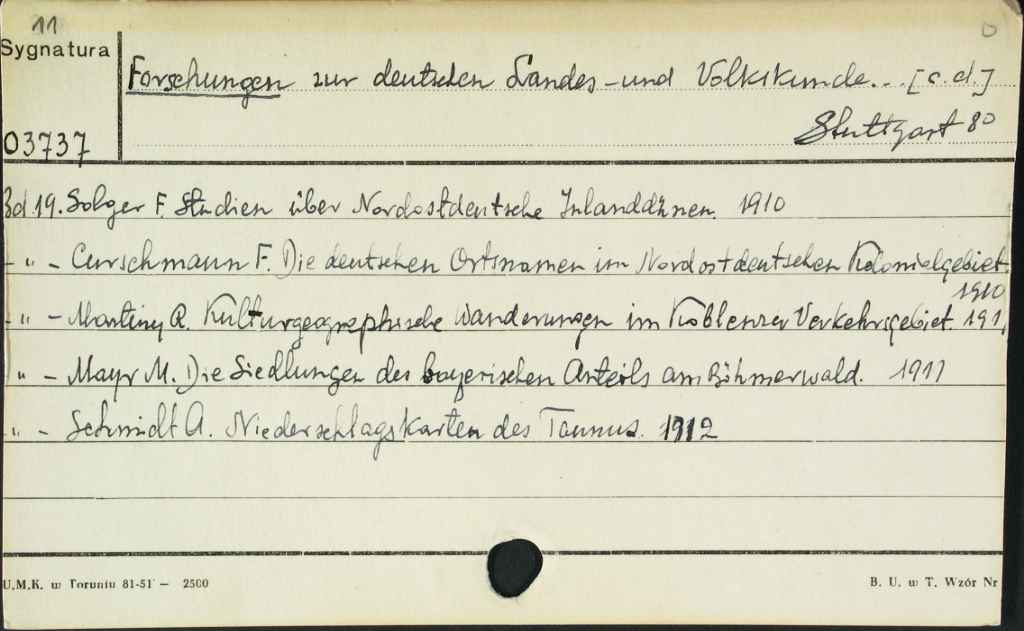 11
Sygnatura
Forschungen zur deutschen Landes- und Volkskunde... [c.d.]
Stuttgart 8°
03737
Bd. 19. Solger F. Studien über Nordostdeutsche Inlanddünen. 1910
- " - Curschmann F. Die deutschen Ortsnamen im Nordostdeutschen Kolonielgebiet.
1910
- " - Martiny R. Kulturgeographische Wanderungen im Koblenzer Verkehrsgebiet. 1911
- " - Mayr M. Die Siedlungen des bayerischen Anteils am Böhmerwald. 1911
- " - Schmidt A. Niederschlagskarten des Taunus. 1912
U.M.K. w Toruniu 81-51 - 2500
B. U. w T. Wzór Nr